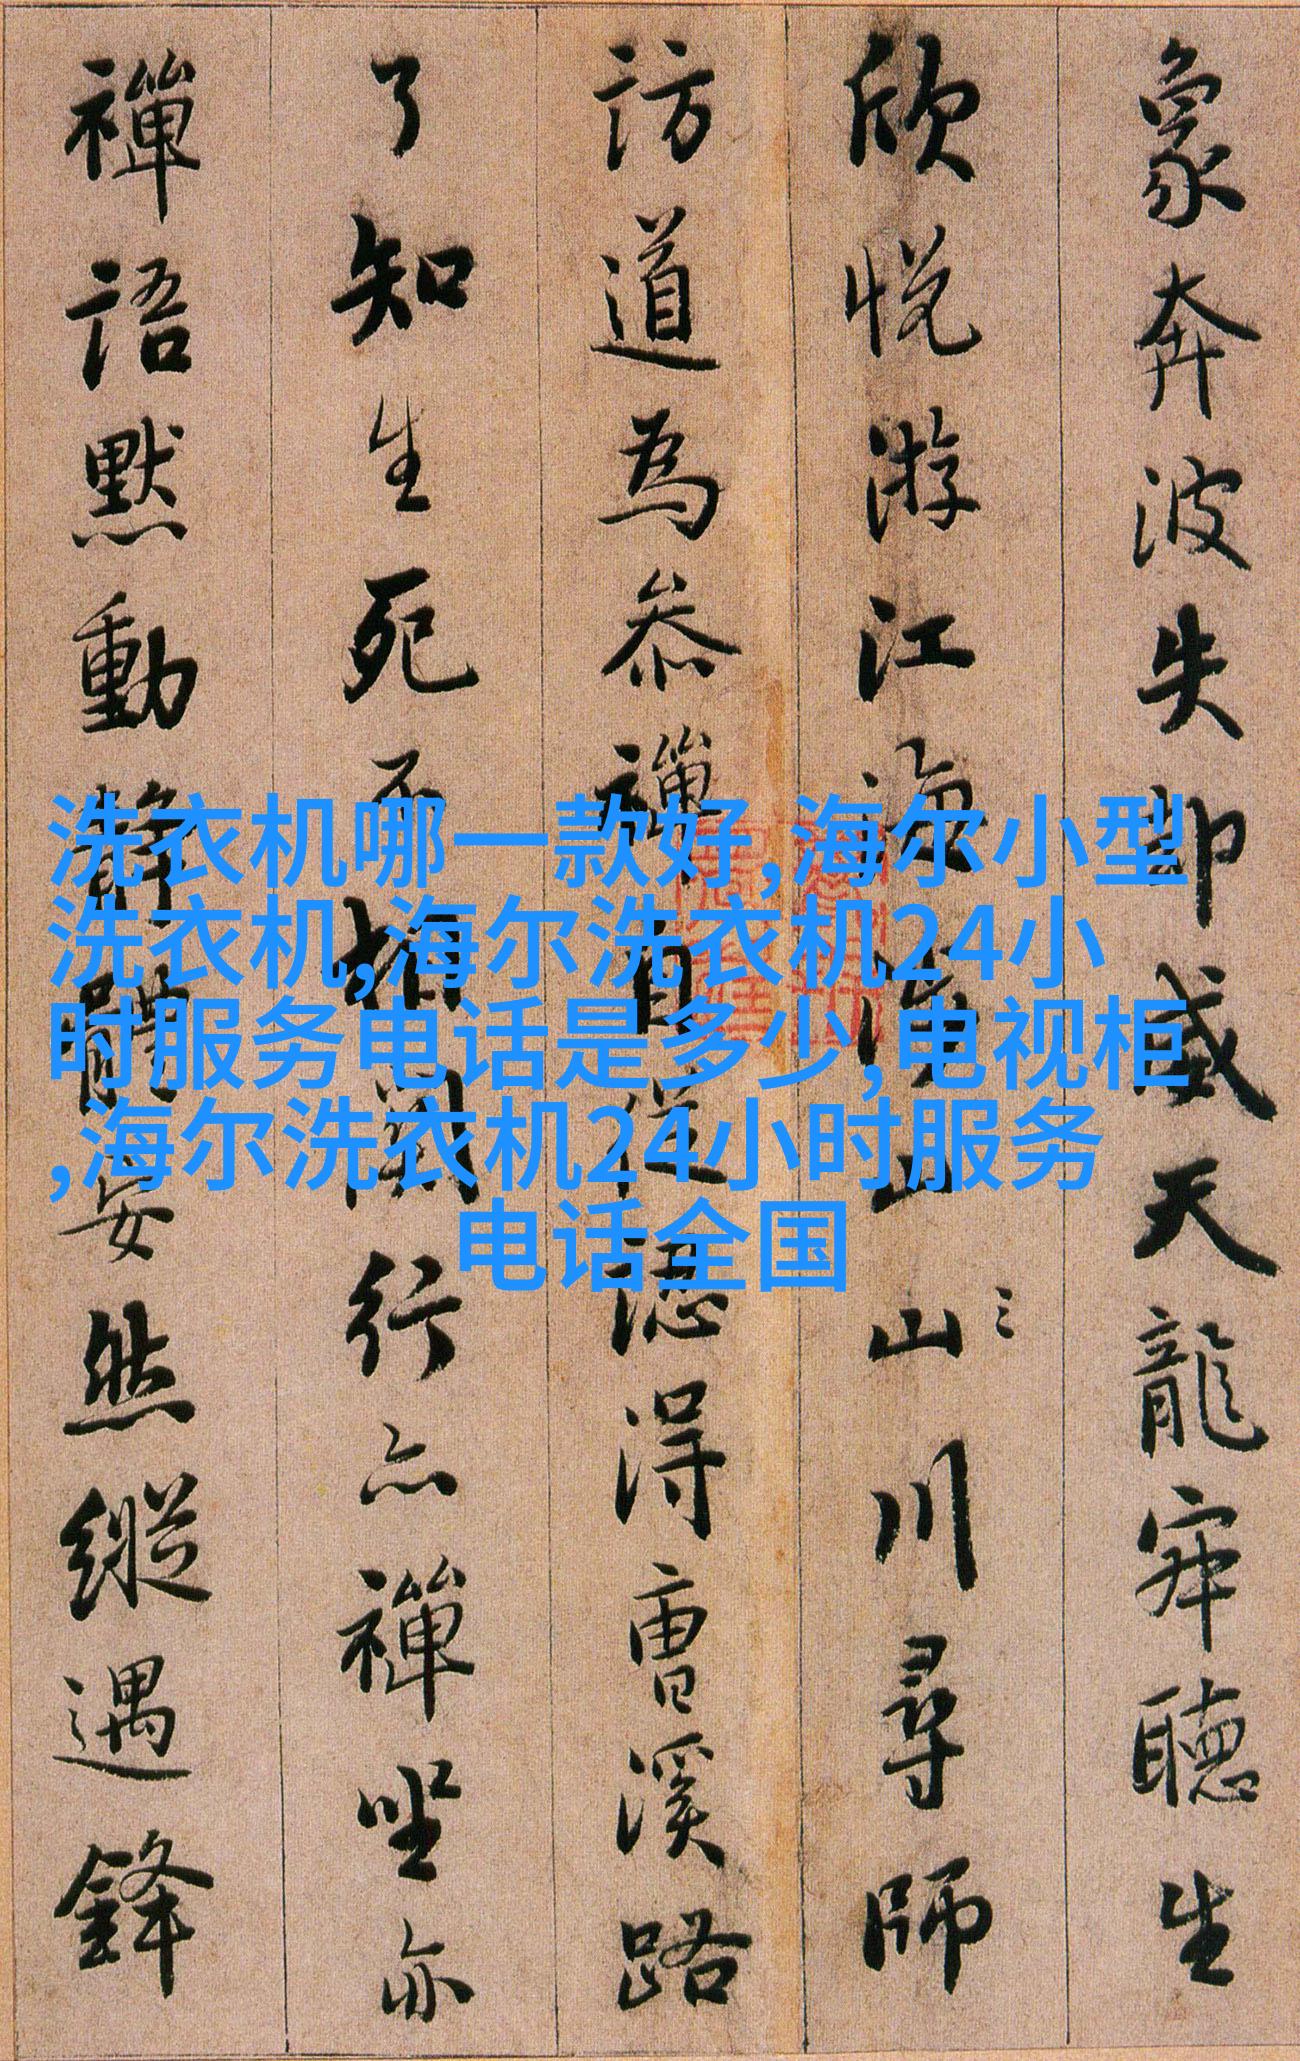 象奔波失卻威天龍寂聽生
欣悅游江海涉山山川尋師
訪道為叅禪自從認得曹溪路
了知生死不相關行亦禪坐亦
禪語默動靜體安然縱遇鋒
洗衣机哪一款好,海尔小型
洗衣机,海尔洗衣机24小
时服务电话是多少,电视柜
,海尔洗衣机24小时服务
电话全国